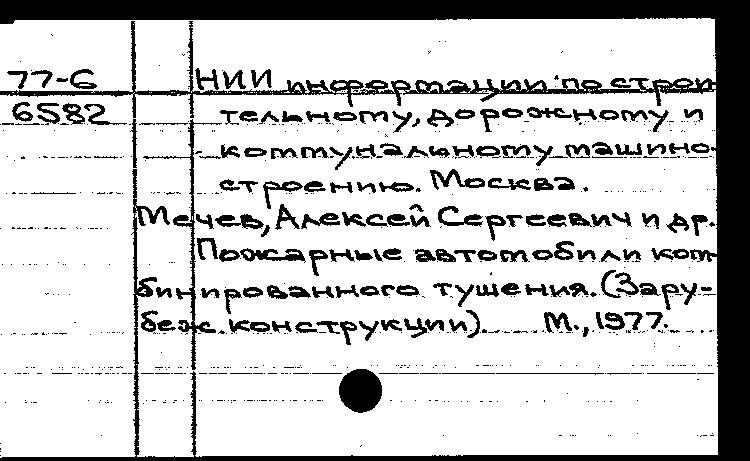 77-6
6582
НИИ информации по строи-
тельному, дорожному и
коммунальному машино-
строению. Москва.
Мечев, Алексей Сергеевич и др.
Пожарные автомобили ком-
бинированного тушения. (Зару-
беж. конструкции). М., 1977.